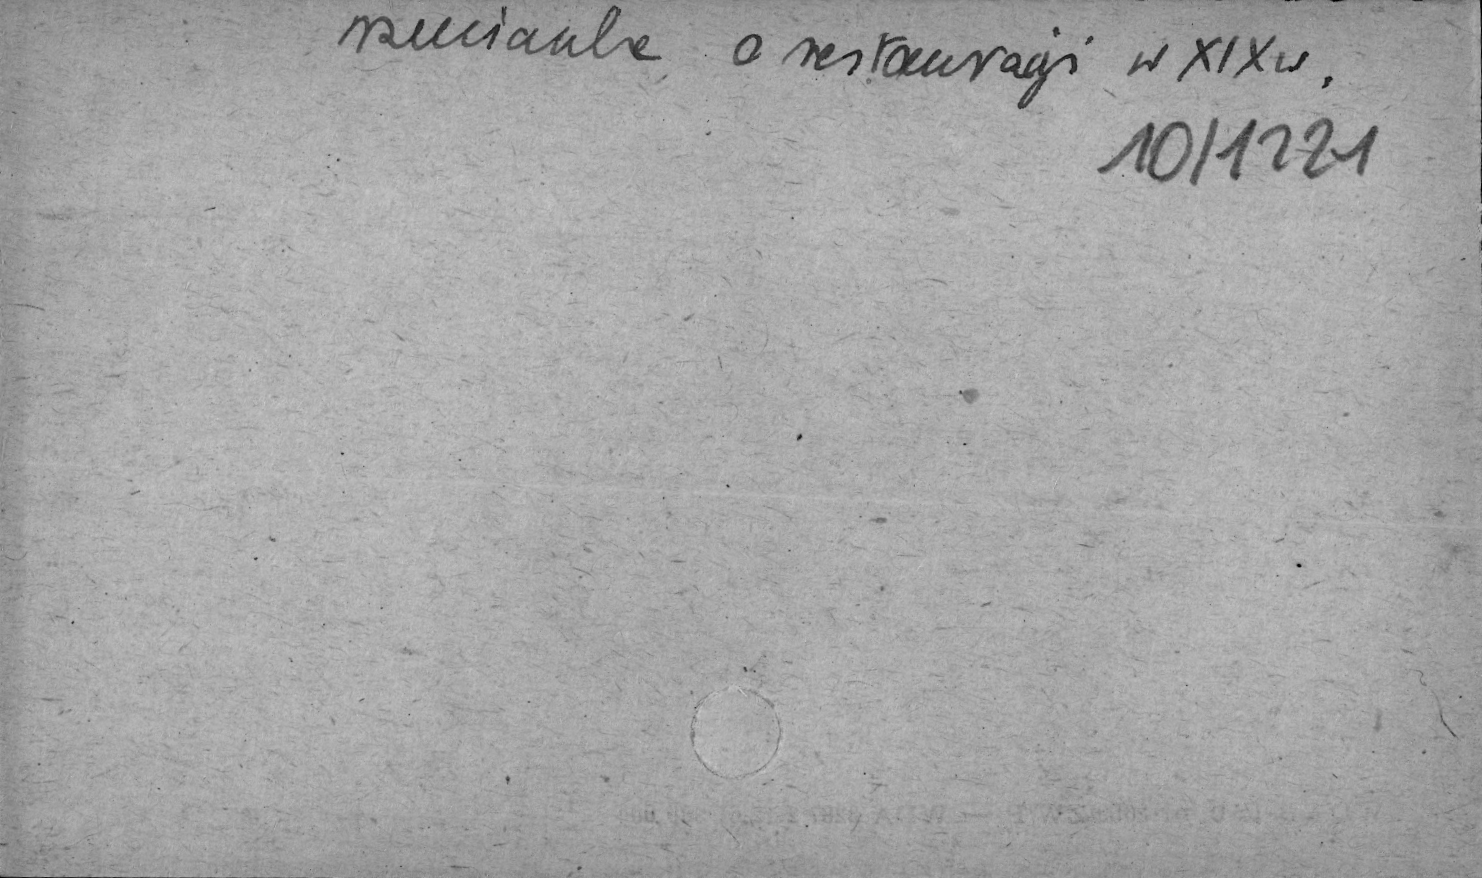 wzmianka o restauracji w XIX w.
10/1221